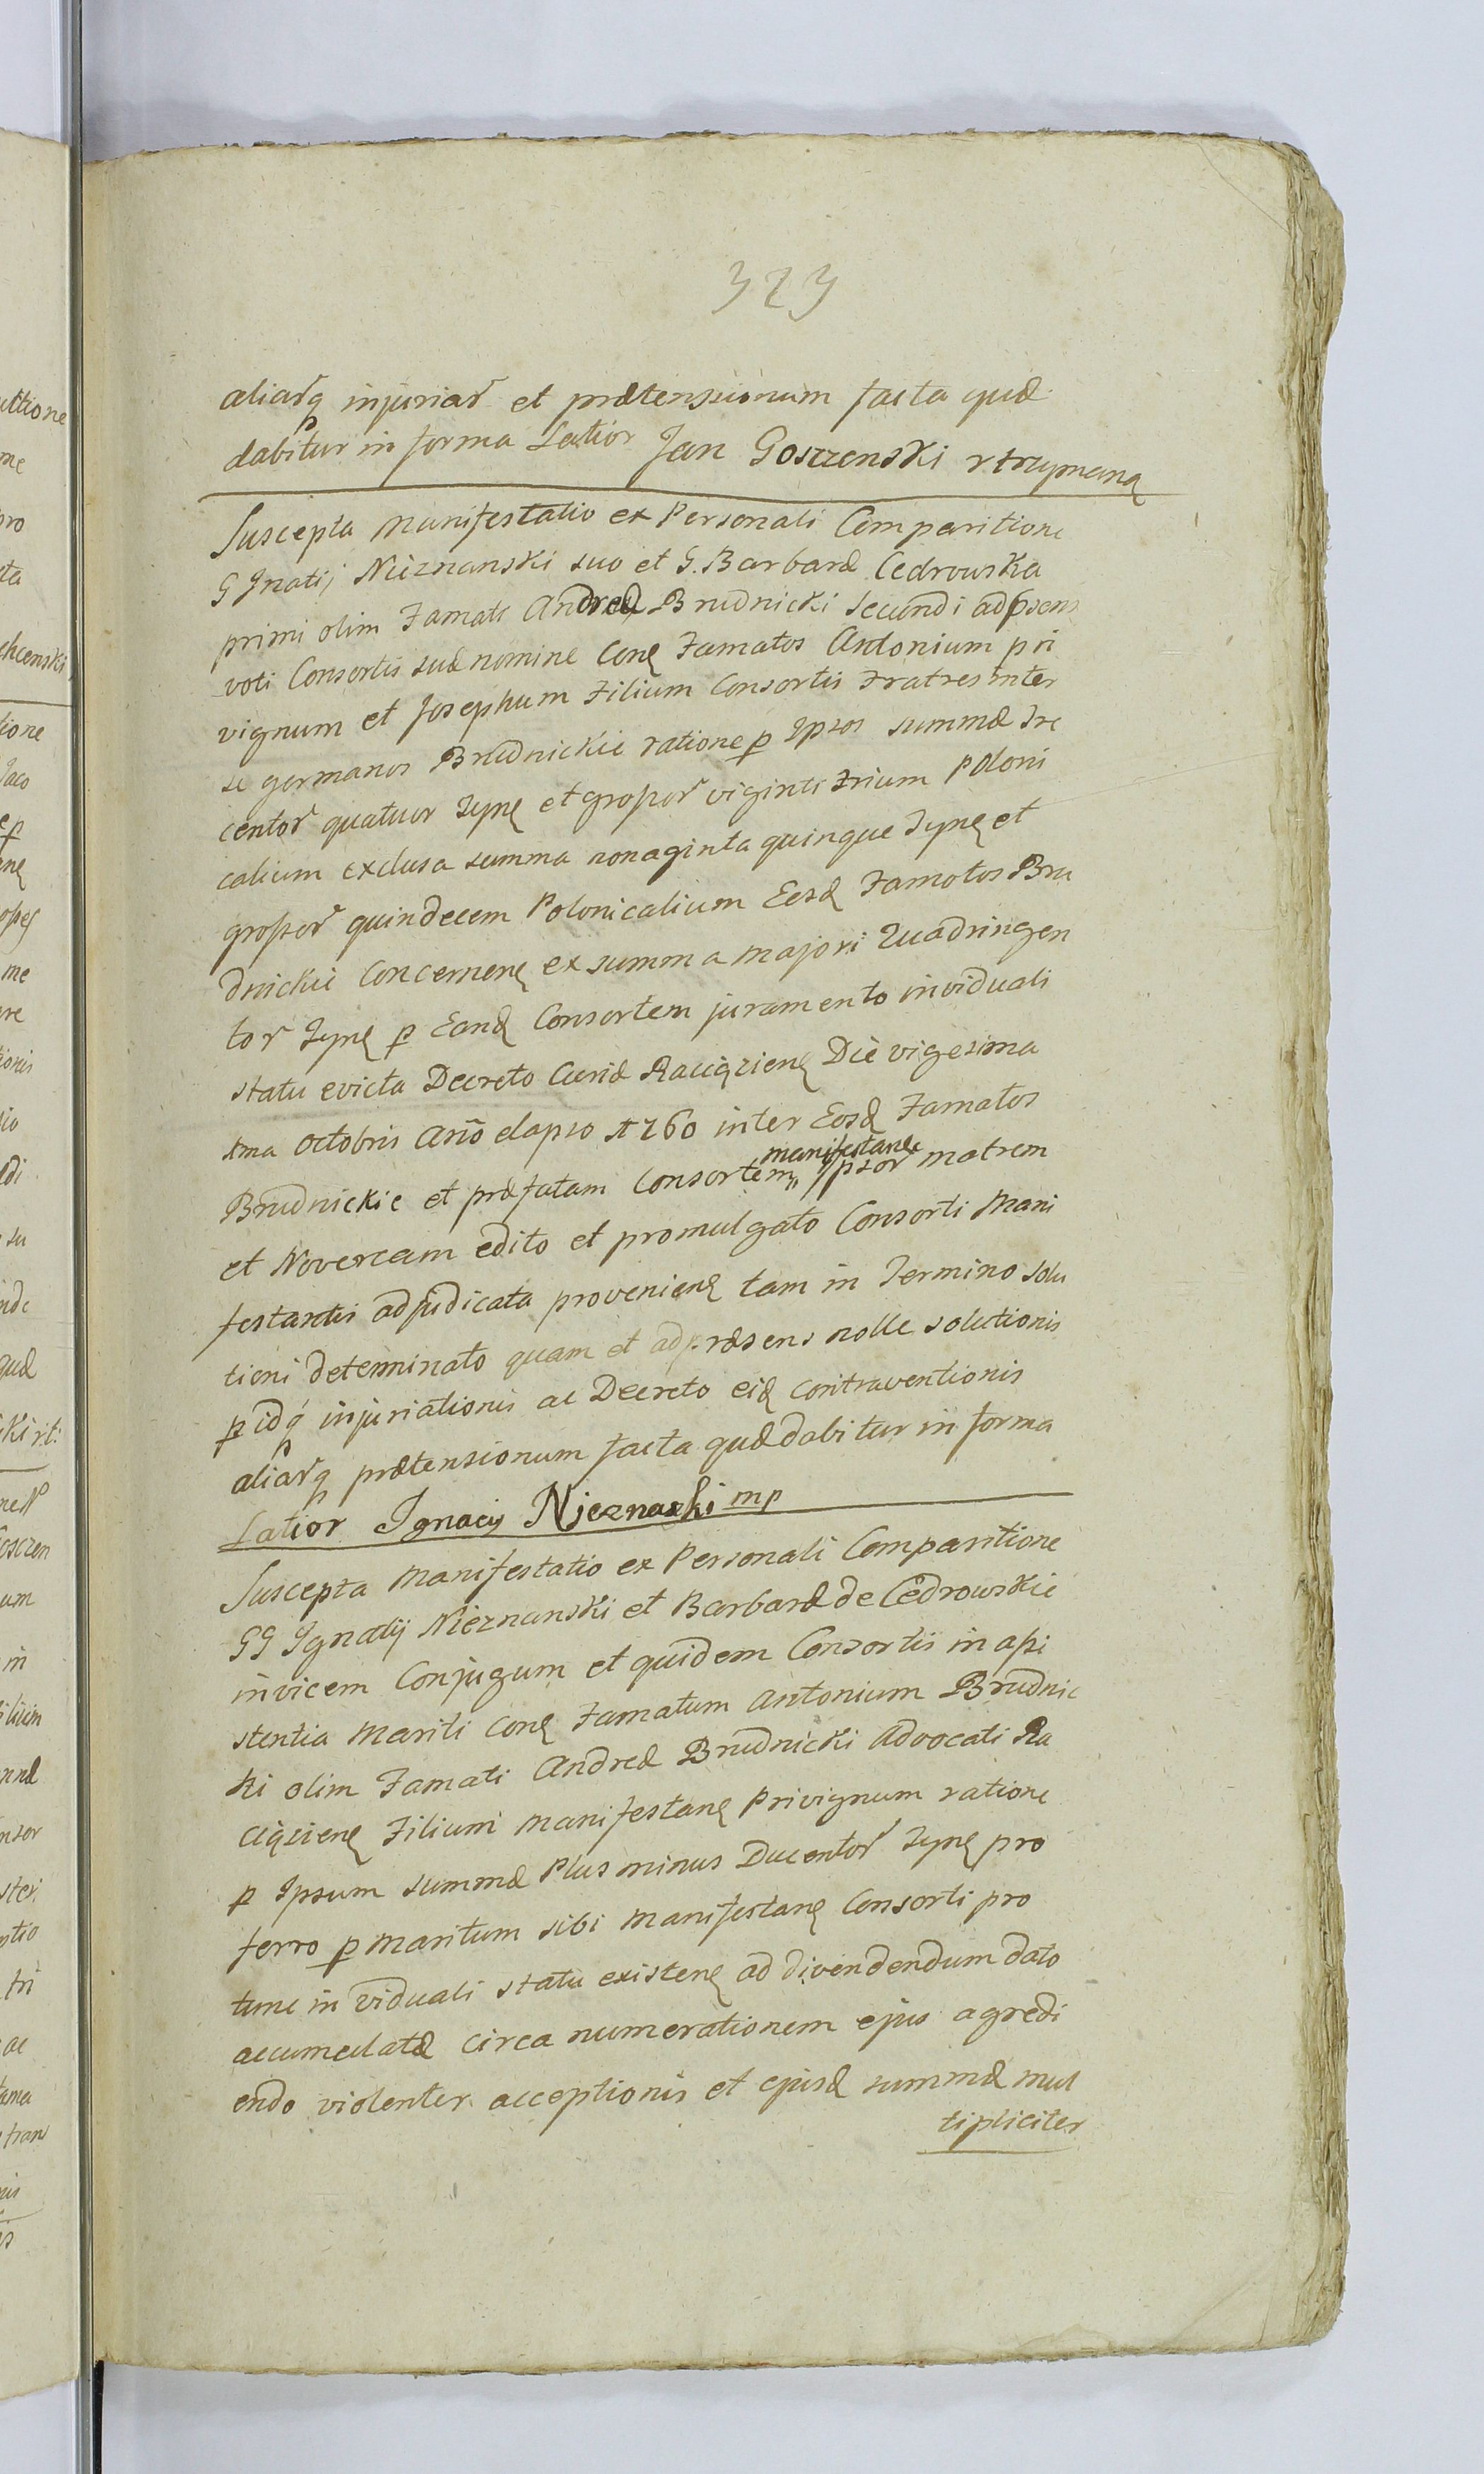 323
aliarq injuriar et prætensionum facta quæ
dabitur in forma Latior Jan Goszczenski rtrzymana
Suscepta Manifestatio ex Personali Comparitione
G Ignatij Nieznanski suo et G. Barbaræ Cedrowska
primi olim Famati Andreæ Brudnicki Secundi adpsens
voti Consortis suæ nomine Conę Famatos Antonium pri
vignum et Josephum Filium Consortis Fratres inter
se germanos Brudnickie ratione p Ipsos summæ Tre
centor quatuor Tynę et grossor viginti trium Poloni
calium exclusa summa nonaginta quinque Tynę et
grossor quindecem Polonicalium Eosd Famotos Bru
dnickie Concernenę ex summa majori Quadringen
tor Tynę p Eand Consortem juramento in viduali
statu evicta Decreto Curiæ Raciązienę Die vigesima
xma Octobris Anno elapso 1760 inter Eosd Famatos
Brudnickie et præfatam Consortem manifestanę Ipsor matrem
et Novercam edito et promulgato Consorti Mani
festantis adjudicata provenienę tam in Termino solu
tioni determinato quam et adpræsens nolle solutionis
p idq injuriationis ac Decreto eid contraventionis
aliarq prætensionum facta quæ dabitur in forma
Latior Ignacy Nieznaski mp
Suscepta Manifestatio ex Personali Comparitione
GG Ignatij Nieznanski et Barbaræ de Cedrowskie
invicem Conjugum et quidem Consortis in assi
stentia Mariti Conę Famatum Antonium Brudnic
ki olim Famati Andreæ Brudnicki Advocati Ra
ciązienę Filium Manifestanę Privignum ratione
p Ipsum summæ Plus minus Ducentor Tynę pro
ferro p Maritum sibi Manifestanę Consorti pro
tunc in viduali statu existenę ad divendendum dato
accumulatæ circa numerationem ejus agredi
endo violenter acceptionis et ejusd summæ mul
tipliciter